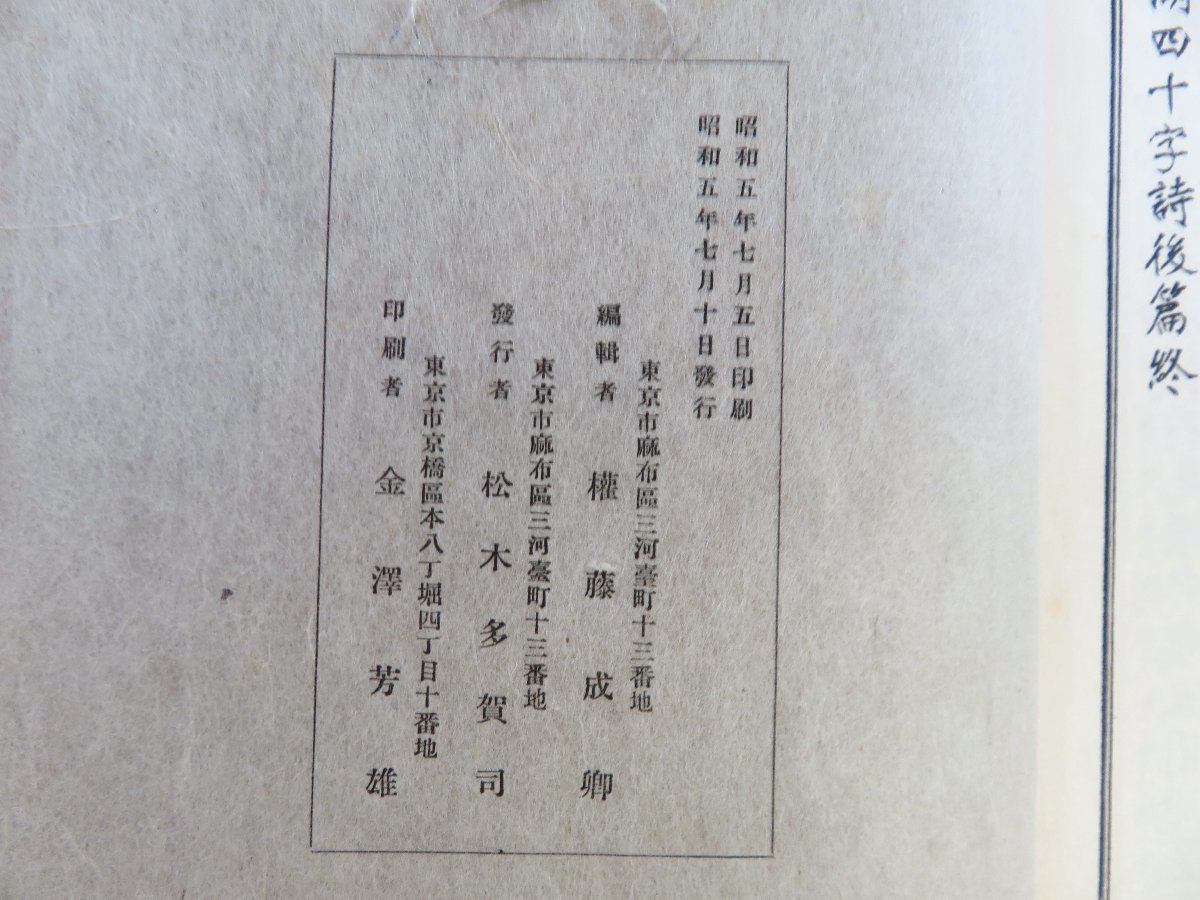 四十字詩後篇終
昭和五年七月五日印刷
昭和五年七月十日發行
東京市麻布區三河臺町十三番地
編輯者 權藤成卿
東京市麻布區三河臺町十三番地
發行者 松木多賀司
東京市京橋區本八丁堀四丁目十番地
印刷者 金澤芳雄